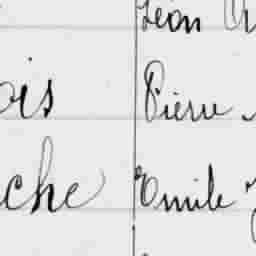 Léon
ois Pierre
che Emile